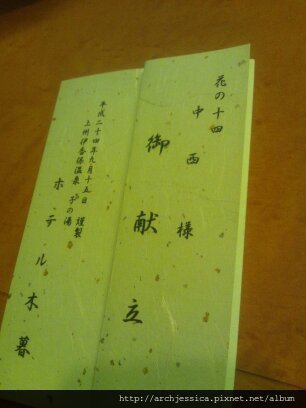 花の十四
中西様
御献立
平成二十四年九月十五日 謹製
上州伊香保温泉 子の湯
ホテル木暮
http://archjessica.pixnet.net/album